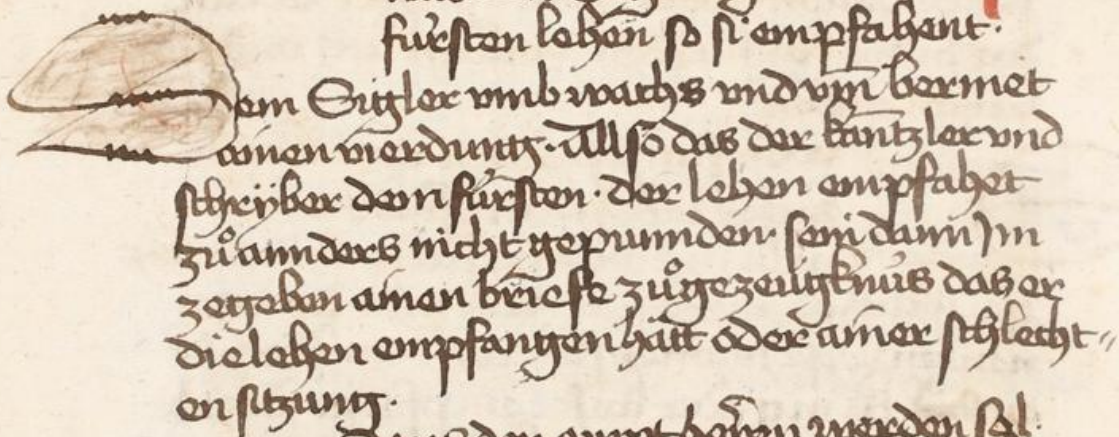 fürsten lehen̄ so si empfahent·
Dem Sigler vmb wachs vnd vm̄ bermet
ainen vierdung· Allso das der kantzler vnd
schryber dem fürsten· der lehen empfahet
zů annders nicht gepunnden· seni dann Im
zegeben ainen briefe zůgezeugknüs das er
die lehen empfangen hatt oder ainer schlecht〃
en sitzung·
werden sol